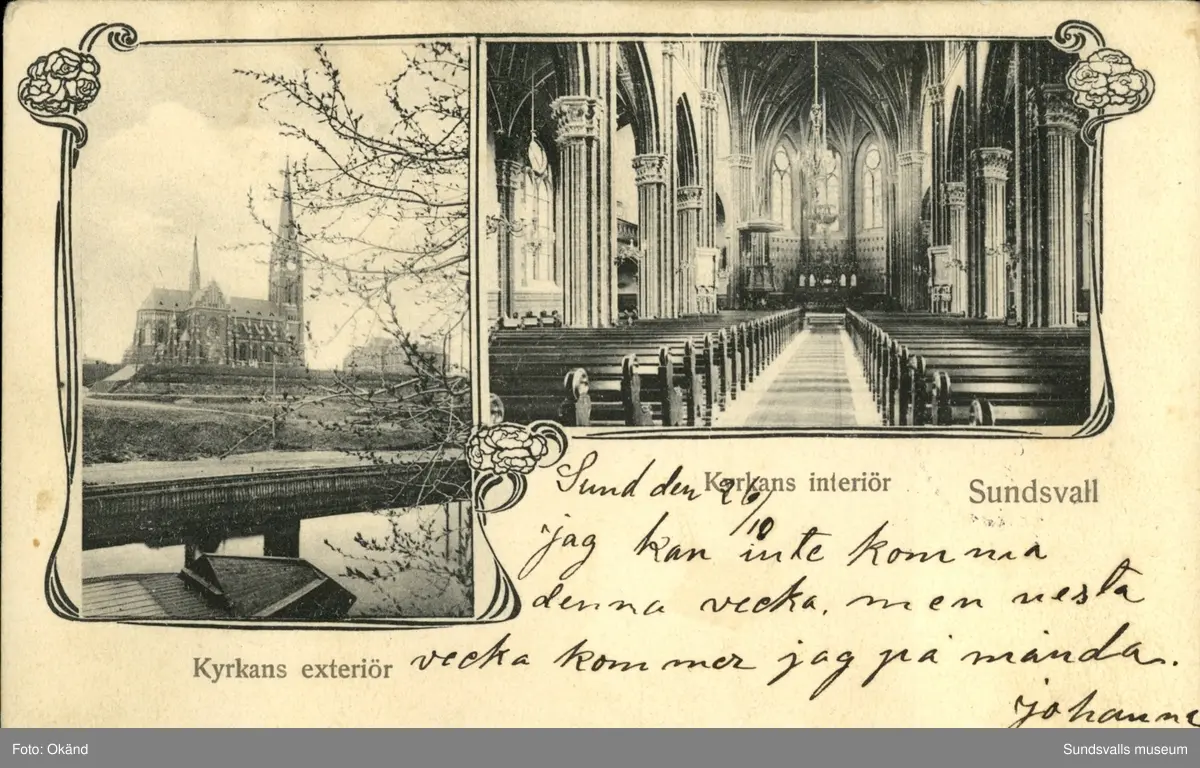 Kyrkans interiör
Sundsvall
Sund den 26/10
jag kan inte komma
denna vecka. men nesta
Kyrkans exteriör
vecka kommer jag på månda.
johanna
Foto: Okänd
Sundsvalls museum